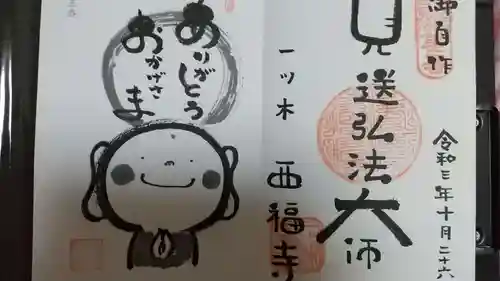 御自作
見送弘法大師
令和三年十月二十六
一ッ木
西福寺
ありがとう
おかげさま